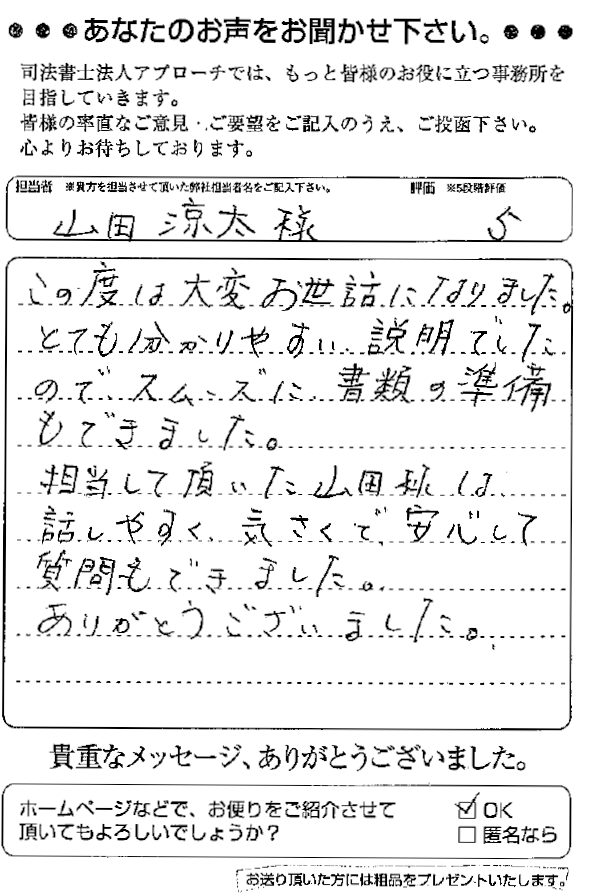 ●●●あなたのお声をお聞かせ下さい。●●●
司法書士法人アプローチでは、もっと皆様のお役に立つ事務所を
目指していきます。
皆様の率直なご意見・ご要望をご記入のうえ、ご投函下さい。
心よりお待ちしております。
担当者 ※貴方を担当させて頂いた弊社担当者名をご記入下さい。 評価 ※5段階評価
山田 涼太 様 5
この度は大変お世話になりました。
とても分かりやすい説明でした
ので、スムーズに書類の準備
もできました。
担当して頂いた山田様は
話しやすく、気さくで、安心して
質問もできました。
ありがとうございました。
貴重なメッセージ、ありがとうございました。
ホームページなどで、お便りをご紹介させて ☑ OK
頂いてもよろしいでしょうか? □ 匿名なら
お送り頂いた方には粗品をプレゼントいたします。